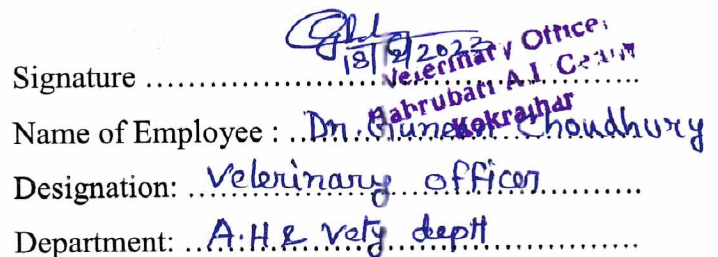 18/9/2023
Veterinary Officer
Signature ....................
A.I. Centre
Kokrajhar
Name of Employee : Dr. Choudhury
Designation: Veterinary officer
Department: A.H & Vety deptt